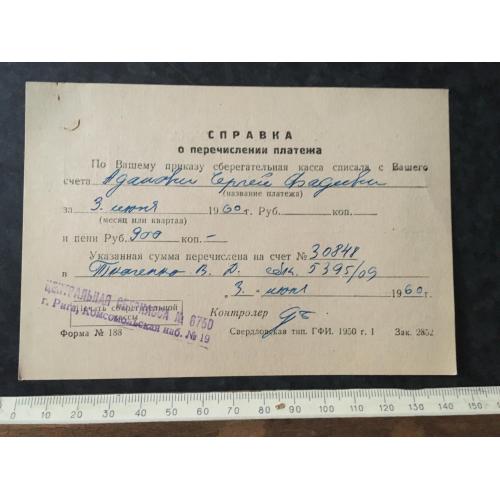 СПРАВКА
о перечислении платежа
По Вашему приказу сберегательная касса списала с Вашего
счета Адамович Сергей Фадеевич
(название платежа)
за 3. июня 1960 г. Руб. коп. -
(месяц или квартал)
и пени Руб. 900 коп. -
Указанная сумма перечислена на счет № 30848
в Ткаченко В. Д. сбк. 5395/09
3. - июня 1960 г.
ЦЕНТРАЛЬНАЯ СБЕРКАССА № 6750
г. Рига, Комсомольская наб. № 19
Печать сберегательной
кассы
Контролер
Форма № 188 Свердловская тип. ГФИ. 1950 г. 1 Зак. 2852
0 10 20 30 40 50 60 70 80 90 100 110 120 130 140 150